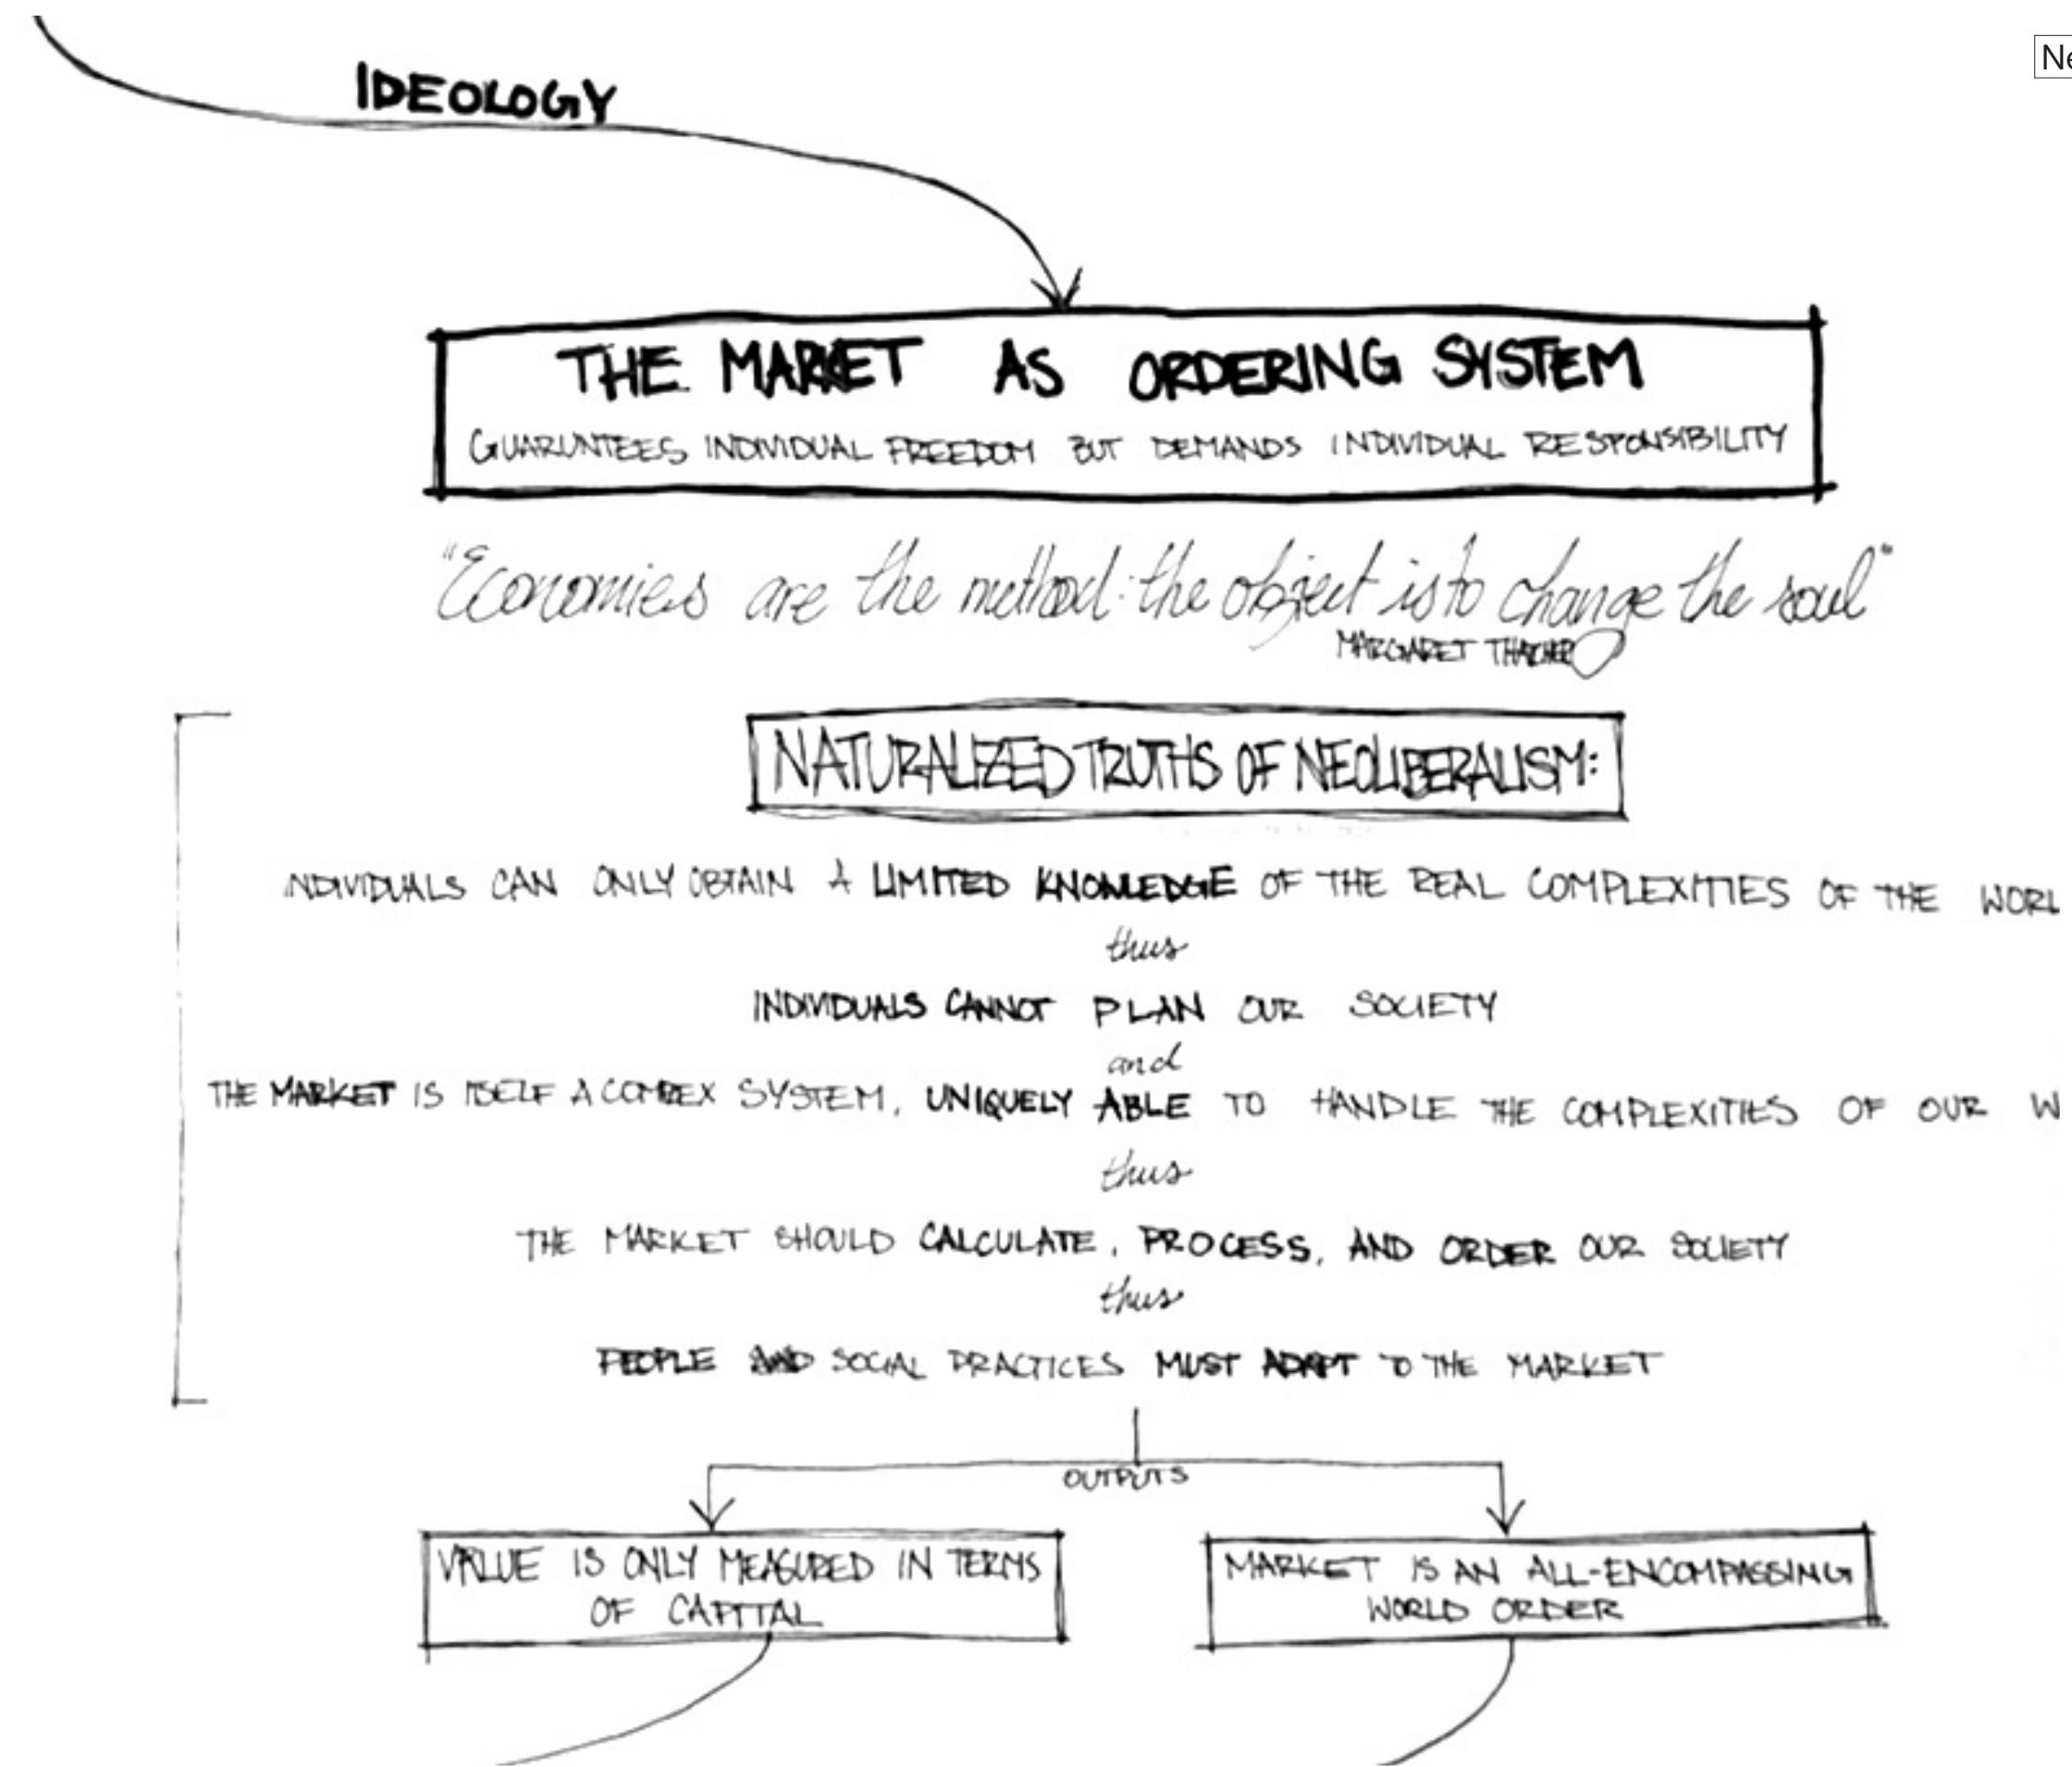 Ne
IDEOLOGY
THE MARKET AS ORDERING SYSTEM
GUARUNTEES INDIVIDUAL FREEDOM BUT DEMANDS INDIVIDUAL RESPONSIBILITY
"Economies are the method: the object is to change the soul"
MARGARET THACHER
NATURALIZED TRUTHS OF NEOLIBERALISM:
INDIVIDUALS CAN ONLY OBTAIN A LIMITED KNOWLEDGE OF THE REAL COMPLEXITIES OF THE WORL
thus
INDIVIDUALS CANNOT PLAN OUR SOCIETY
and
THE MARKET IS ITSELF A COMPLEX SYSTEM, UNIQUELY ABLE TO HANDLE THE COMPLEXITIES OF OUR W
thus
THE MARKET SHOULD CALCULATE, PROCESS, AND ORDER OUR SOCIETY
thus
PEOPLE AND SOCIAL PRACTICES MUST ADAPT TO THE MARKET
OUTPUTS
VALUE IS ONLY MEASURED IN TERMS
OF CAPITAL
MARKET IS AN ALL-ENCOMPASSING
WORLD ORDER